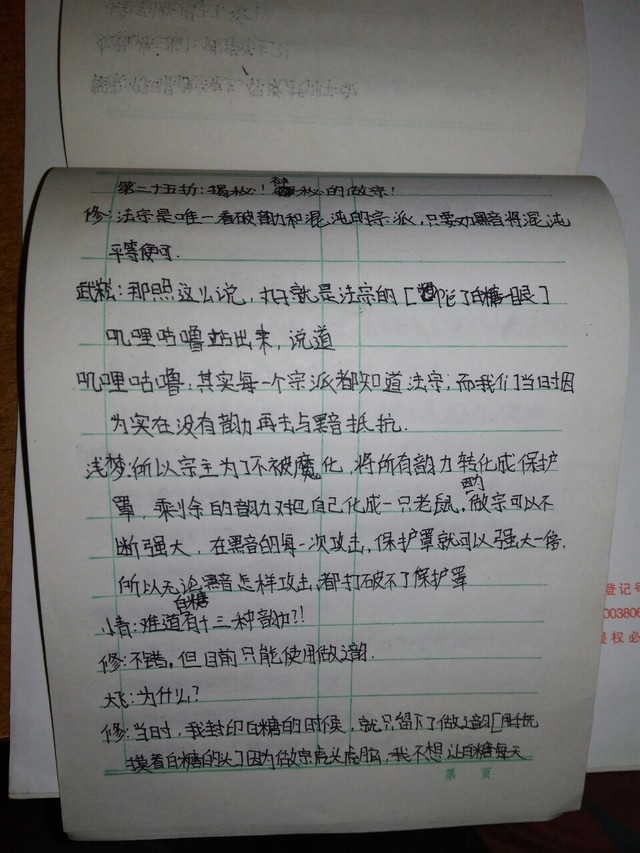 第二十五折：揭秘！神秘的做宗！
修：法宗是唯一看破韵力和混沌的宗派，只要对黑音将混沌
平等便可．
武崧：那照这么说，丸子就是法宗的［瞥了白糖一眼］
叽哩咕噜站出来，说道
叽哩咕噜：其实每一个宗派都知道法宗，而我们当时因
为实在没有韵力再去与黑音抵抗．
浅梦：所以宗主为了不被魔化，将所有韵力转化成保护
罩，剩余的韵力才把自己化成一只老鼠，做宗的可以不
断强大，在黑音的每一次攻击，保护罩就可以强大一倍．
所以无论黑音怎样攻击，都打破不了保护罩
小青：难道白糖有十三种韵力?!
修：不错，但目前只能使用做之韵．
大飞：为什么？
修：当时，我封印白糖的时候，就只留下了做之韵［用手抚
摸着白糖的头］因为做宗虎头虎脑，我不想让白糖每天
第　页
登记号
00380
侵权必